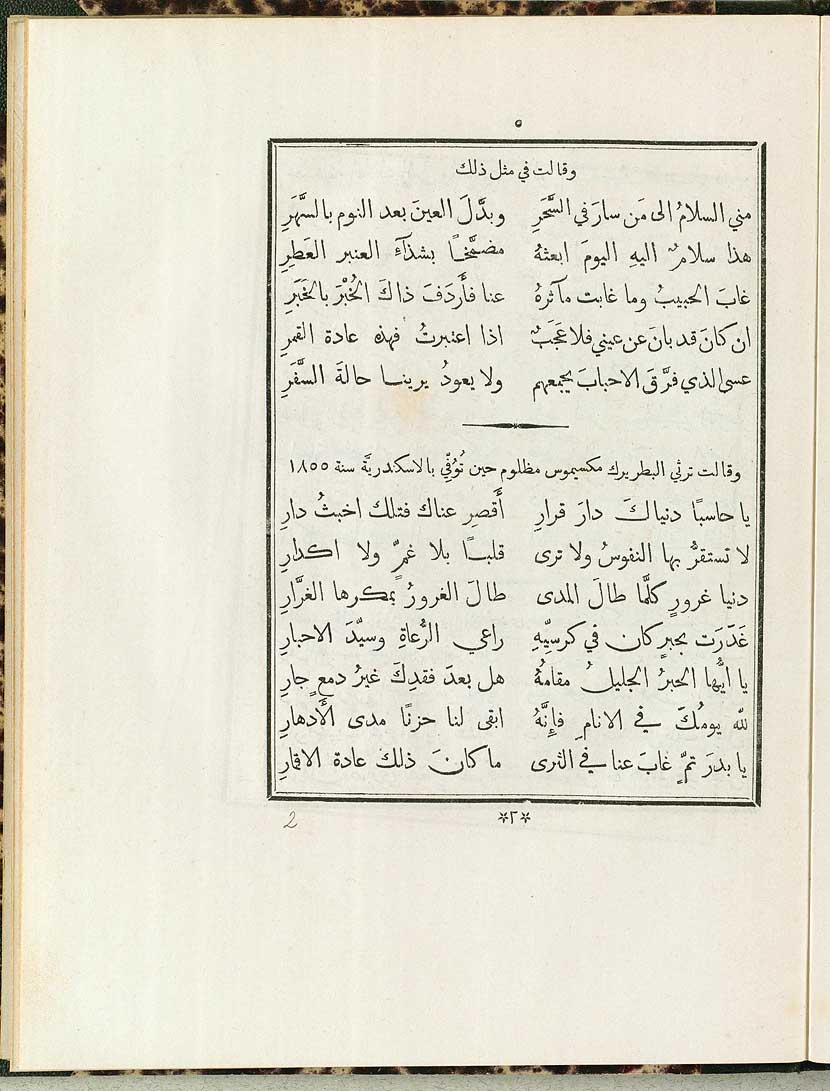 ٥
وقالت في مثل ذلك
مني السلامُ الى مَن سارَ في السَّحَرِ وبدَّلَ العينَ بعد النوم بالسهَرِ
هذا سلامٌ اليهِ اليومَ ابعثهُ مضمَّخاً بشذآءِ العنبر العَطِرِ
غابَ الحبيبُ وما غابت مآثرهُ عنا فأَردَفَ ذاكَ الخُبْرَ بالخَبَرِ
ان كانَ قد بانَ عن عيني فلا عَجَبٌ اذا اعتبرتُ فهذه عادة القمرِ
عسى الذي فرَّقَ الاحبابَ يجمعهم ولا يعودُ يرينا حالةَ السَّفَرِ
وقالت ترثي البطريرك مكسيموس مظلوم حين تُوُفّي بالاسكندريَّة سنة ١٨٥٥
يا حاسبًا دنياكَ دارَ قرارِ أَقصِر عناك فتلك اخبثُ دارِ
لا تستقرُّ بها النفوسُ ولا ترى قلبًا بلا غمٍّ ولا اكدارِ
دنيا غرورٍ كلَّما طالَ المدى طالَ الغرورُ بمكرها الغرَّارِ
غَدَرَت بحبرٍ كان في كرسيّهِ راعي الرُّعاةِ وسيّدَ الاحبارِ
يا ايُّها الحبرُ الجليلُ مقامُهُ هل بعدَ فقدِكَ غيرُ دمعٍ جارِ
لله يومُكَ في الانامِ فإِنَّهُ ابقى لنا حزنًا مدى الأَدهارِ
يا بدرَ تمٍّ غابَ عنا في الثرى ما كانَ ذلك عادة الاقمارِ
*٢*
2